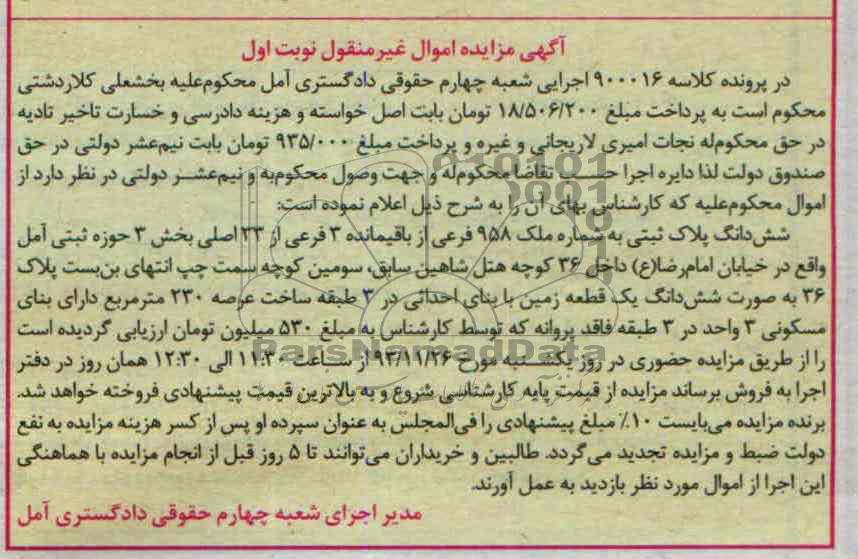 آگهی مزایده اموال غیرمنقول نوبت اول
در پرونده کلاسه ۹۰۰۰۱۶ اجرایی شعبه چهارم حقوقی دادگستری آمل محکوم‌علیه بخشعلی کلاردشتی
محکوم است به پرداخت مبلغ ۱۸/۵۰۶/۲۰۰ تومان بابت اصل خواسته و هزینه دادرسی و خسارت تاخیر تادیه
در حق محکوم‌له نجات امیری لاریجانی و غیره و پرداخت مبلغ ۹۳۵/۰۰۰ تومان بابت نیم‌عشر دولتی در حق
صندوق دولت لذا دایره اجرا حسب تقاضا محکوم‌له و جهت وصول محکوم‌به و نیم‌عشر دولتی در نظر دارد از
اموال محکوم‌علیه که کارشناس بهای آن را به شرح ذیل اعلام نموده است:
شش‌دانگ پلاک ثبتی به شماره ملک ۹۵۸ فرعی از باقیمانده ۳ فرعی از ۲۳ اصلی بخش ۳ حوزه ثبتی آمل
واقع در خیابان امام‌رضا(ع) داخل ۳۶ کوچه هتل شاهین سابق، سومین کوچه سمت چپ انتهای بن‌بست پلاک
۳۶ به صورت شش‌دانگ یک قطعه زمین با بنای احداثی در ۳ طبقه ساخت عرصه ۲۳۰ مترمربع دارای بنای
مسکونی ۳ واحد در ۳ طبقه فاقد پروانه که توسط کارشناس به مبلغ ۵۳۰ میلیون تومان ارزیابی گردیده است
را از طریق مزایده حضوری در روز یکشنبه مورخ ۹۳/۱۱/۲۶ از ساعت ۱۱:۳۰ الی ۱۲:۳۰ همان روز در دفتر
اجرا به فروش برساند مزایده از قیمت پایه کارشناسی شروع و به بالاترین قیمت پیشنهادی فروخته خواهد شد.
برنده مزایده می‌بایست ۱۰٪ مبلغ پیشنهادی را فی‌المجلس به عنوان سپرده او پس از کسر هزینه مزایده به نفع
دولت ضبط و مزایده تجدید می‌گردد. طالبین و خریداران می‌توانند تا ۵ روز قبل از انجام مزایده با هماهنگی
این اجرا از اموال مورد نظر بازدید به عمل آورند.
مدیر اجرای شعبه چهارم حقوقی دادگستری آمل
ParsNamadData